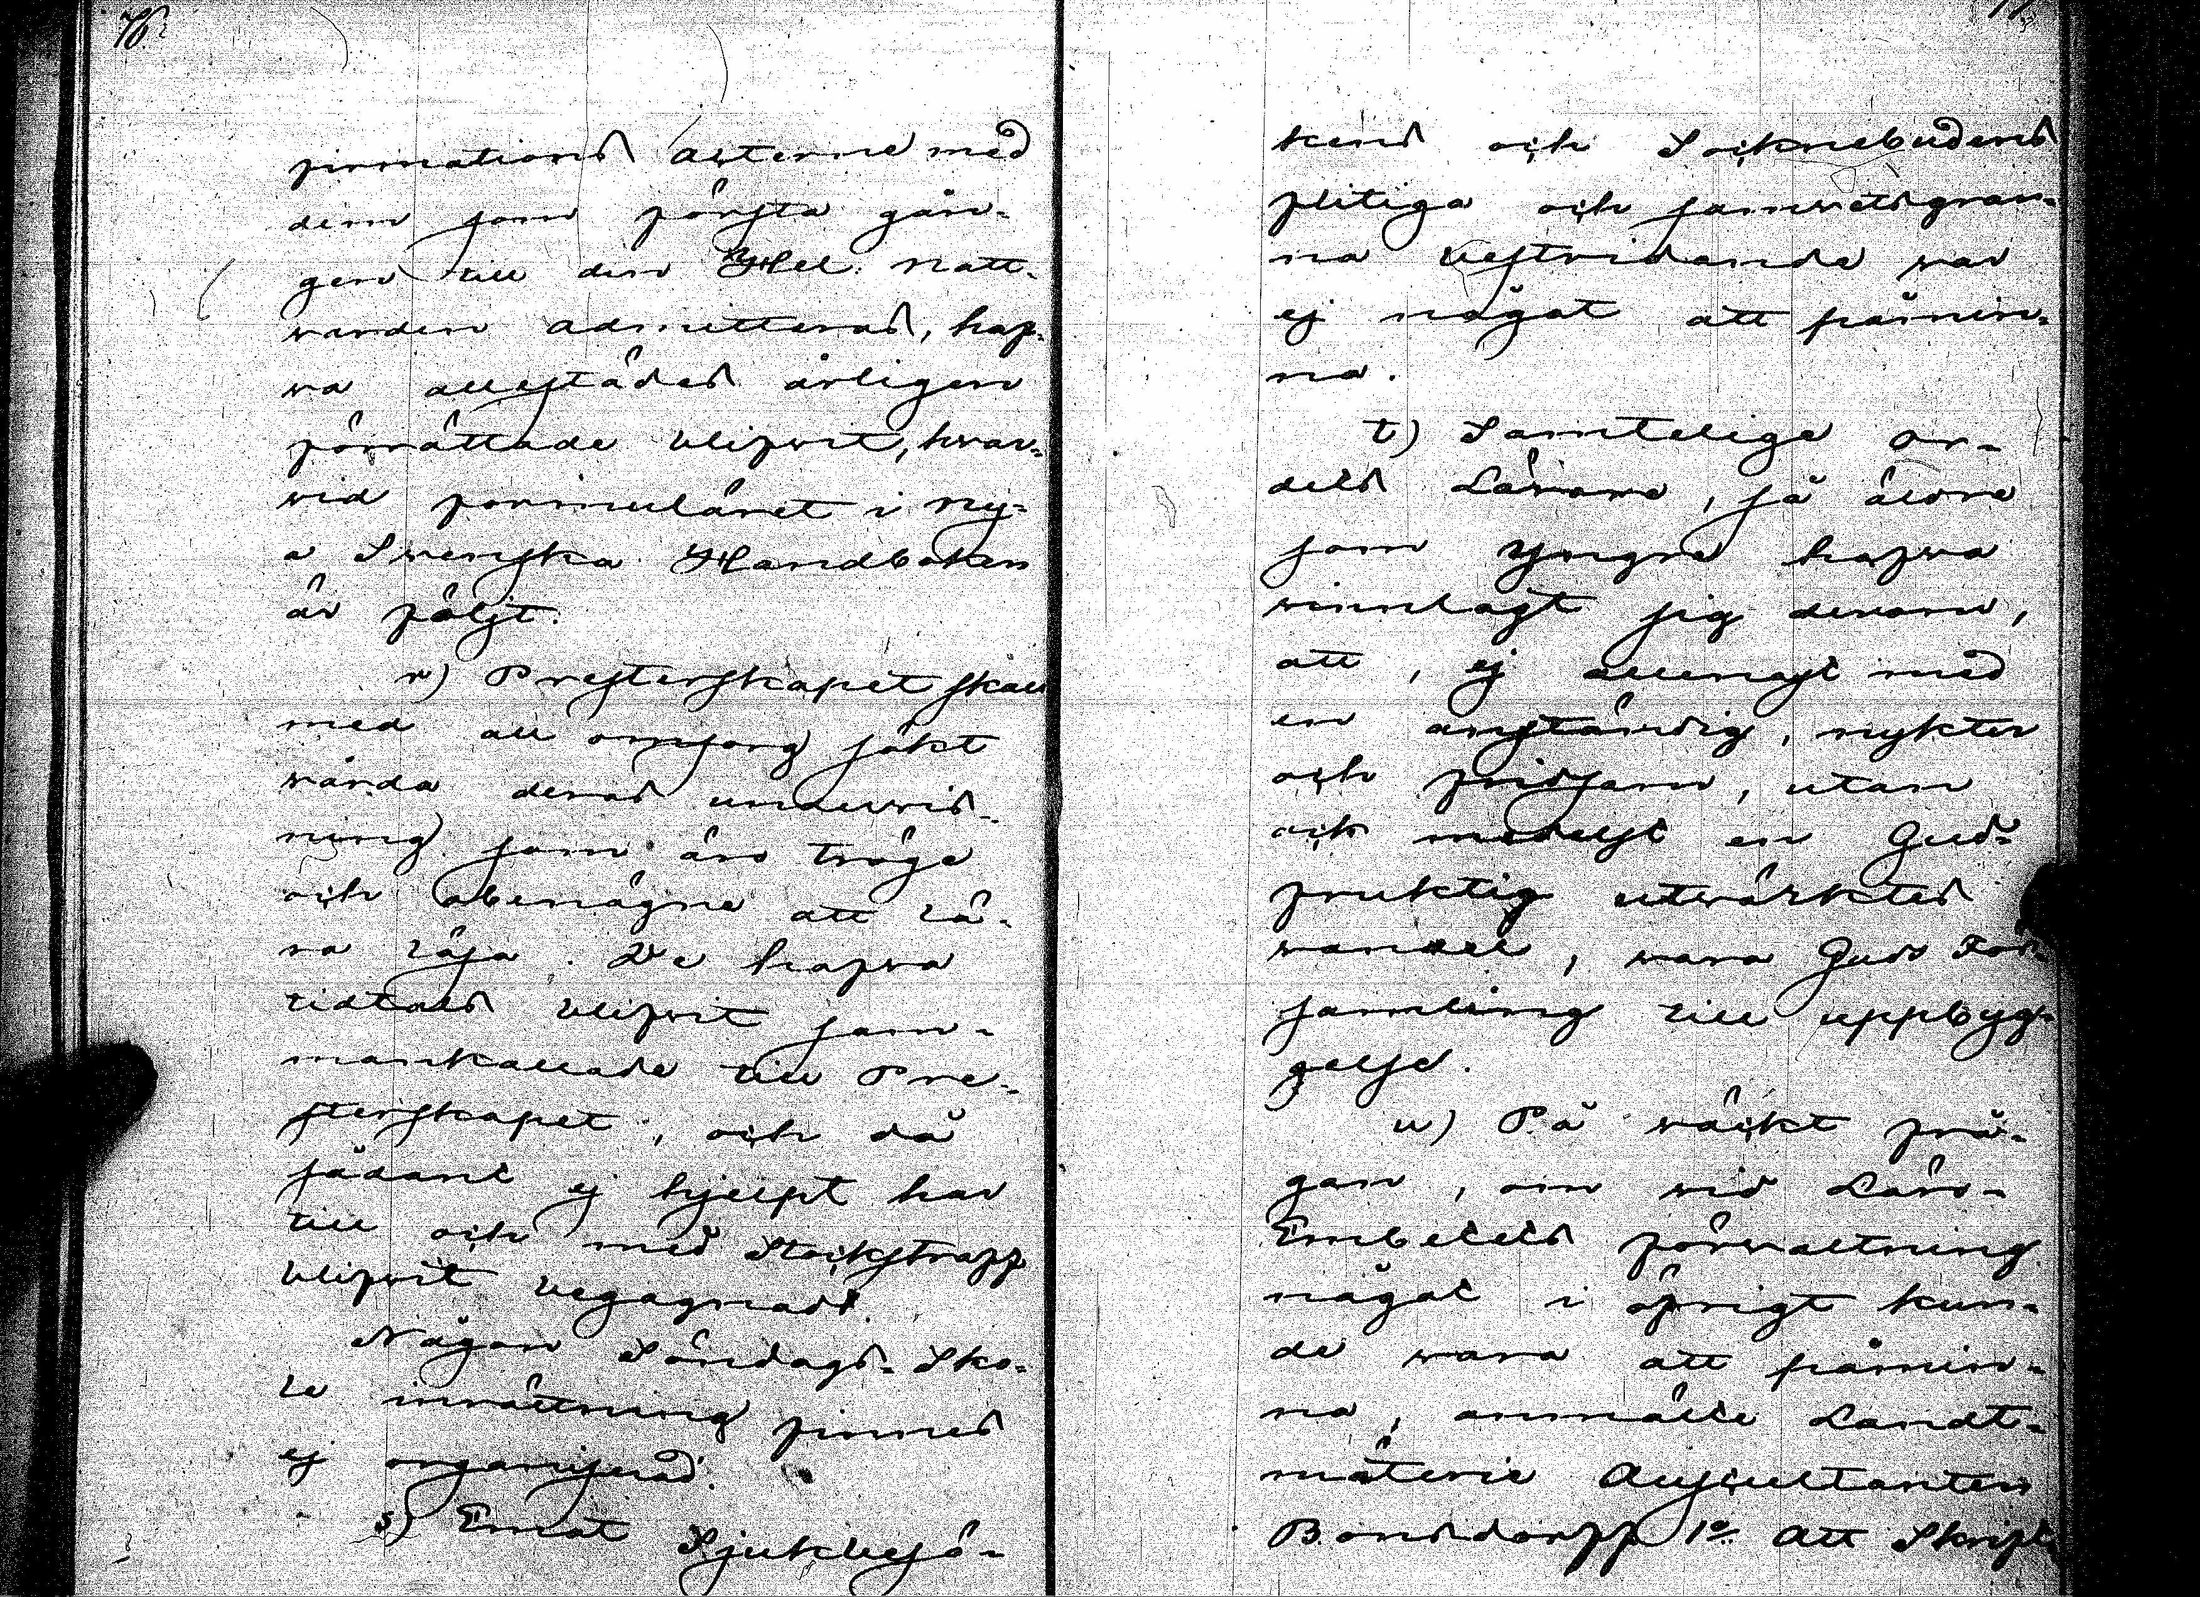 76.
firmations Acterne med
dem som första gån-
gen till den Hel. Natt-
varden admitteras, haf-
va allestädes årligen
förrättade blifvit, hvar-
vid formuläret i Ny-
a Svenska Handboken
är följt.
r) Presterskapet skall
med all omsorg sökt
vårda deras undervis-
ning som äro tröge
och obenägne att lä-
ra läsa. De hafva
tidtals blifvit sam-
mankallade till Pre-
sterskapet, och då
sådant ej hjelpt har
till och med Stockstraff
blifvit begagnadt.
Någon Söndags-Sko-
le inrättning finnes
ej organiserad.
s) Emot Sjukbesö-
kens och Socknebudens
flitiga och samvetsgran-
na bestridande var
ej något att påmin-
na.
t) Samtelige or-
dets Lärare, så äldre
som yngre hafva
vinnlagt sig derom,
att, ej allenast med
en anständig, nykter
och fridsam, utan
ock medelst en Gud-
fruktig utvärktes
vandel, vara Guds För-
samling till uppbyg-
gelse.
u) På väckt frå-
gan, om vid Läro-
Embetets förvaltning
något i öfrigt kun-
de vara att påmin-
na, anmälte Landt-
mäterie Auscultanten
Bonsdorff 1o Att Skrift-